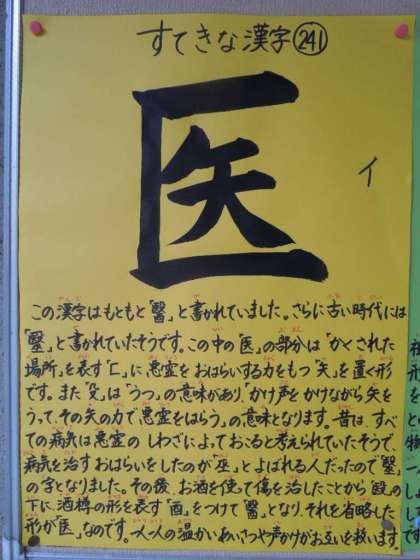 すてきな漢字 241
医
イ
この漢字はもともと「醫」と書かれていました。さらに古い時代には
「毉」と書かれていたそうです。この中の「医」の部分は「かくされた
場所」を表す「匚」に悪霊をおはらいする力をもつ「矢」を置く形
です。また「殳」は「うつ」の意味があり、「かけ声をかけながら矢を
うって、その矢の力で悪霊をはらう」の意味となります。昔は、すべ
ての病気は悪霊のしわざによっておこると考えられていたそうで、
病気を治すおはらいをしたのが「巫」とよばれる人だったので「毉」
の字となりました。その後、お酒を使って傷を治したことから「殹」の
下に、酒樽の形を表す「酉」をつけて「醫」となり、それを省略した
形が「医」なのです。一人一人の温かいあいさつや声かけがお互いを救います